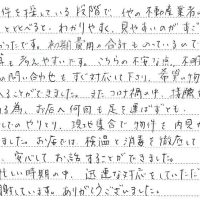 件を探している段階で、他の不動産業者の
と比べると、わかりやすく、見やすいのがすご
かったです。初期費用の合計ものっているので
算も考えやすいです。こちらの不安な点、不明
の問い合せもすぐ対応して下さり、希望の物
入ることができました。またコロナ禍の中、接触を
る為、お店へ何回も足を運ばずとも、
でのやりとり、現地集合で物件を内見
ました。お店では、検温と消毒を徹底して
、安心してお話することができました。
忙しい時期の中、迅速な対応をしていただ
謝しています。ありがとうございました。